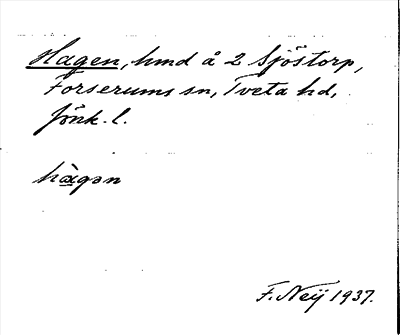 Hagen, hmd å 2 Sjöstorp,
Forserums sn, Tveta hd,
Jönk. l.
hàgən
F. Neij 1937.